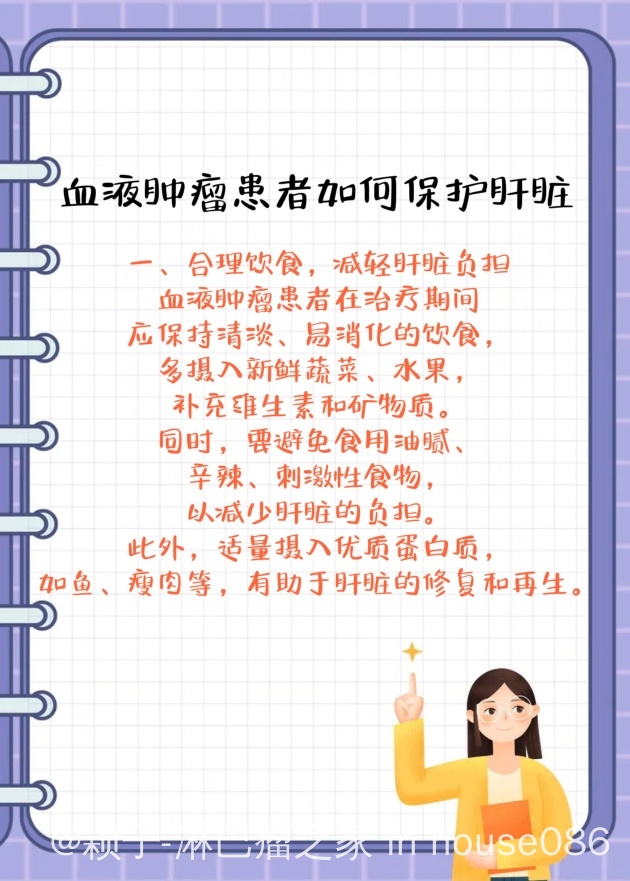 血液肿瘤患者如何保护肝脏
一、合理饮食，减轻肝脏负担
血液肿瘤患者在治疗期间
应保持清淡、易消化的饮食，
多摄入新鲜蔬菜、水果，
补充维生素和矿物质。
同时，要避免食用油腻、
辛辣、刺激性食物，
以减少肝脏的负担。
此外，适量摄入优质蛋白质，
如鱼、瘦肉等，有助于肝脏的修复和再生。
@颖子-淋巴瘤之家 in house086